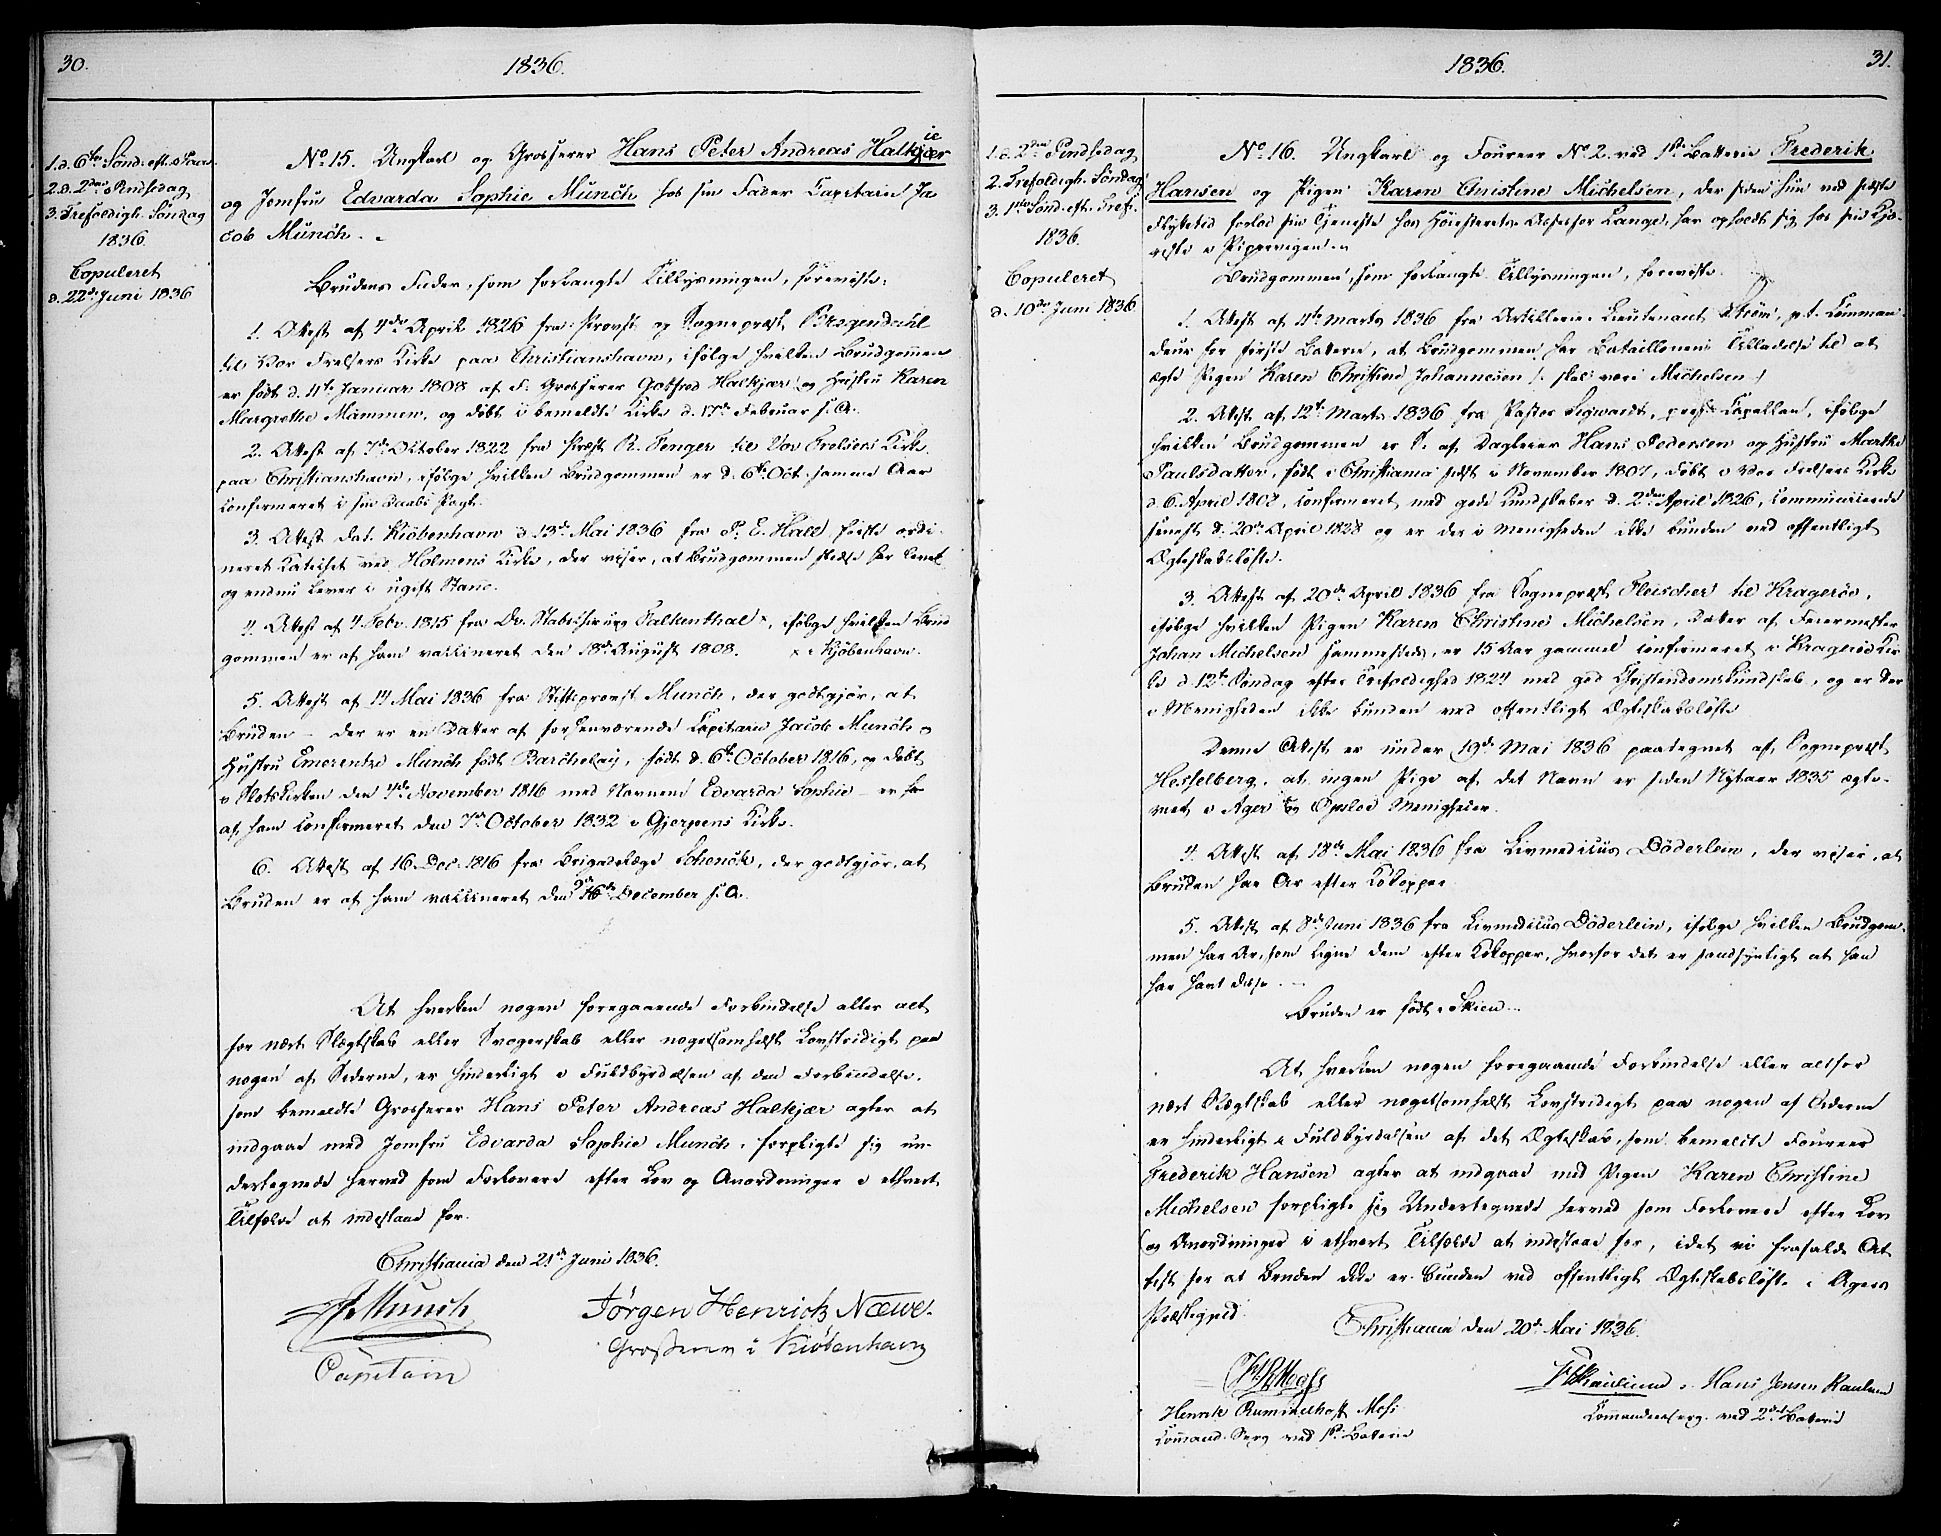 30.
1836.
1. d. 6te Sønd. eft. Paas.
2. d. 2den Pindsedag
3. Trefoldigh. Søndag
1836.
Copuleret
d. 22de Juni 1836
No. 15. Ungkarl og Grosserer Hans Peter Andreas Halkjær
ie
og Jomfru Edvarda Sophie Munch hos sin Fader Capitain Ja-
cob Munch.
Brudens Fader, som forlangte Tillysningen, foreviste:
1. Attest af 4de April 1826 fra Provst og Sognepræst
til Vor Frelsers Kirke paa Christianshavn, ifølge hvilken Brudgommen
er født d. 11te Januar 1808 af F. Grosserer Gotfred Halkjær og Hustru Karen
Margrethe Mammen, og døbt i bemeldte Kirke d. 17de Februar s. A.
2. Attest af 7de October 1822 fra Præst R. Fenger til Vor Frelsers Kirke
paa Christianshavn, ifølge hvilken Brudgommen er d. 6te Oct. samme Aar
confirmeret i sin Daabs Pagt.
3. Attest dat. Kiöbenhavn d. 13de Mai 1836 fra P. E. Hall første ordi-
neret Katechet ved Holmens Kirke, der viser, at Brudgommen stedse har levet
og endnu lever i ugift Stand.
4. Attest af 4 Febr. 1815 fra Dr. Stabschirurg Falkenthal ×, ifølge hvilken Brud
gommen er af ham vaccineret den 18de August 1808. × i Kjöbenhavn.
5. Attest af 14 Mai 1836 fra Stiftsprovst Munch, der godtgjør, at
Bruden – der er en Datter af forhenværende Capitain Jacob Munch og
Hustru Emerentze Munch født Barcholay, født d. 6te October 1816, og døbt
i Slotskirken den 4de November 1816 med Navnene Edvarda Sophie – er
af ham confirmeret den 7de October 1832 i Gjerpens Kirke.
6. Attest af 16. Dec. 1816 fra Brigadelæge Schenck, der godtgjør, at
9de
Bruden er af ham vaccineret den 16de December s. A.
At hverken nogen foregaaende Forbindelse eller alt
for nært Slægtskab eller Svogerskab eller nogetsomhelst Lovstridigt paa
nogen af Siderne, er hinderligt i Fuldbyrdelsen af den Forbindelse,
som bemeldte Grosserer Hans Peter Andreas Halkjær agter at
indgaae med Jomfru Edvarda Sophie Munch, forpligte sig un-
dertegnede herved som Forlovere efter Lov og Anordninger i ethvert
Tilfælde at indestaae for.
Christiania den 21de Juni 1836.
J. Munch
Capitain
Jörgen Henrich Næwe.
Grosserer i Kiöbenhavn
1836.
31.
1. d. 2den Pindsedag
2. Trefoldigh. Søndag
3. 1ste Sønd. eft. Tref.
1836.
Copuleret
d. 10de Juni 1836
No. 16. Ungkarl og Foureer No 2 ved 1ste Batterie Frederik
Hansen og Pigen Karen Christine Michelsen, der siden hun ved sidste
Flyttetid forlod sin Tjeneste hos Höiesterets-Assessor Lange, har opholdt sig hos sin Kjæ-
reste i Pipervigen.
Brudgommen, som forlangte Tillysningen, foreviste:
1. Attest af 11te Marts 1836 fra Artillerie-Lieutenant p. t. Comman-
deur for første Batterie, at Brudgommen har Bataillonens Tilladelse til at
ægte Pigen Karen Christine Johannesen /: skal være Michelsen :/
2. Attest af 12te Marts 1836 fra Pastor Sigwardt, pers. Capellan, ifølge
hvilken Brudgommen er S. af Daglejer Hans Pedersen og Hustru Marthe
Paulsdatter, født i Christiania sidst i November 1807, døbt i Vor Frelsers Kirke
d. 6. April 1808, confirmeret med gode Kundskaber d. 2den April 1826, communicerede
senest d. 20de April 1828 og er der i Menigheden ikke bunden ved offentligt
Ægteskabsløfte.
3. Attest af 20de April 1836 fra Sognepræst Fleischer til Krageröe,
ifølge hvilken Pigen Karen Christine Michelsen, Datter af Feiermester
Johan Michelsen sammesteds, er 15 Aar gammel confirmeret i Krageröe Kir-
ke d. 12te Søndag efter Trefoldighed 1824 med god Christendomskundskab, og er der
i Menigheden ikke bunden ved offentligt Ægteskabsløfte
Denne Attest er under 19de Mai 1836 paategnet af Sognepræst
Hesselberg, at ingen Pige af det Navn er siden Nytaar 1835 ægte-
viet i Ager og Opsloe Menigheder.
4. Attest af 18de Mai 1836 fra Livmedicus Döderlein, der viser, at
Bruden har Ar efter Kokopper
5. Attest af 8de Juni 1836 fra Livmedicus Döderlein, ifølge hvilken Brudgom-
men har Ar, som ligne dem efter Kokopper, hvorfor det er sandsynligt at han
har havt disse.
Bruden er født i Skien.
At hverken nogen foregaaende Forbindelse eller altfor
nært Slægtskab eller nogetsomhelst Lovstridigt paa nogen af Siderne
er hinderligt i Fuldbyrdelsen af det Ægteskab, som bemeldte Foureer
Frederik Hansen agter at indgaae med Pigen Karen Christine
Michelsen forpligte sig Undertegnede herved som Forlovere efter Lov
og Anordninger i ethvert Tilfælde at indestaae for, idet vi frafalde At-
test for at Bruden ikke er bunden ved offentligt Ægteskabsløfte i Agers
Præstegjeld.
Christiania den 20de Mai 1836.
Henrik Rummelhoff Moss
Command. Serg. ved 1ste Batterie
Hans Jensen Raulund
Commandeerserg. ved 2det Batterie